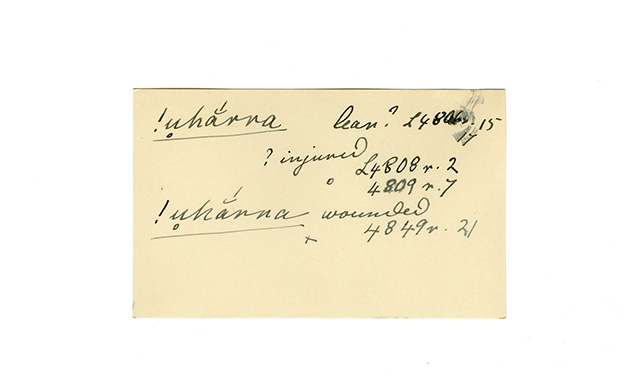 !ụhárra lean? L4806r. 15
17
? injured
L4808 r. 2
4809 r. 7
!ụhárra wounded
4849r. 21